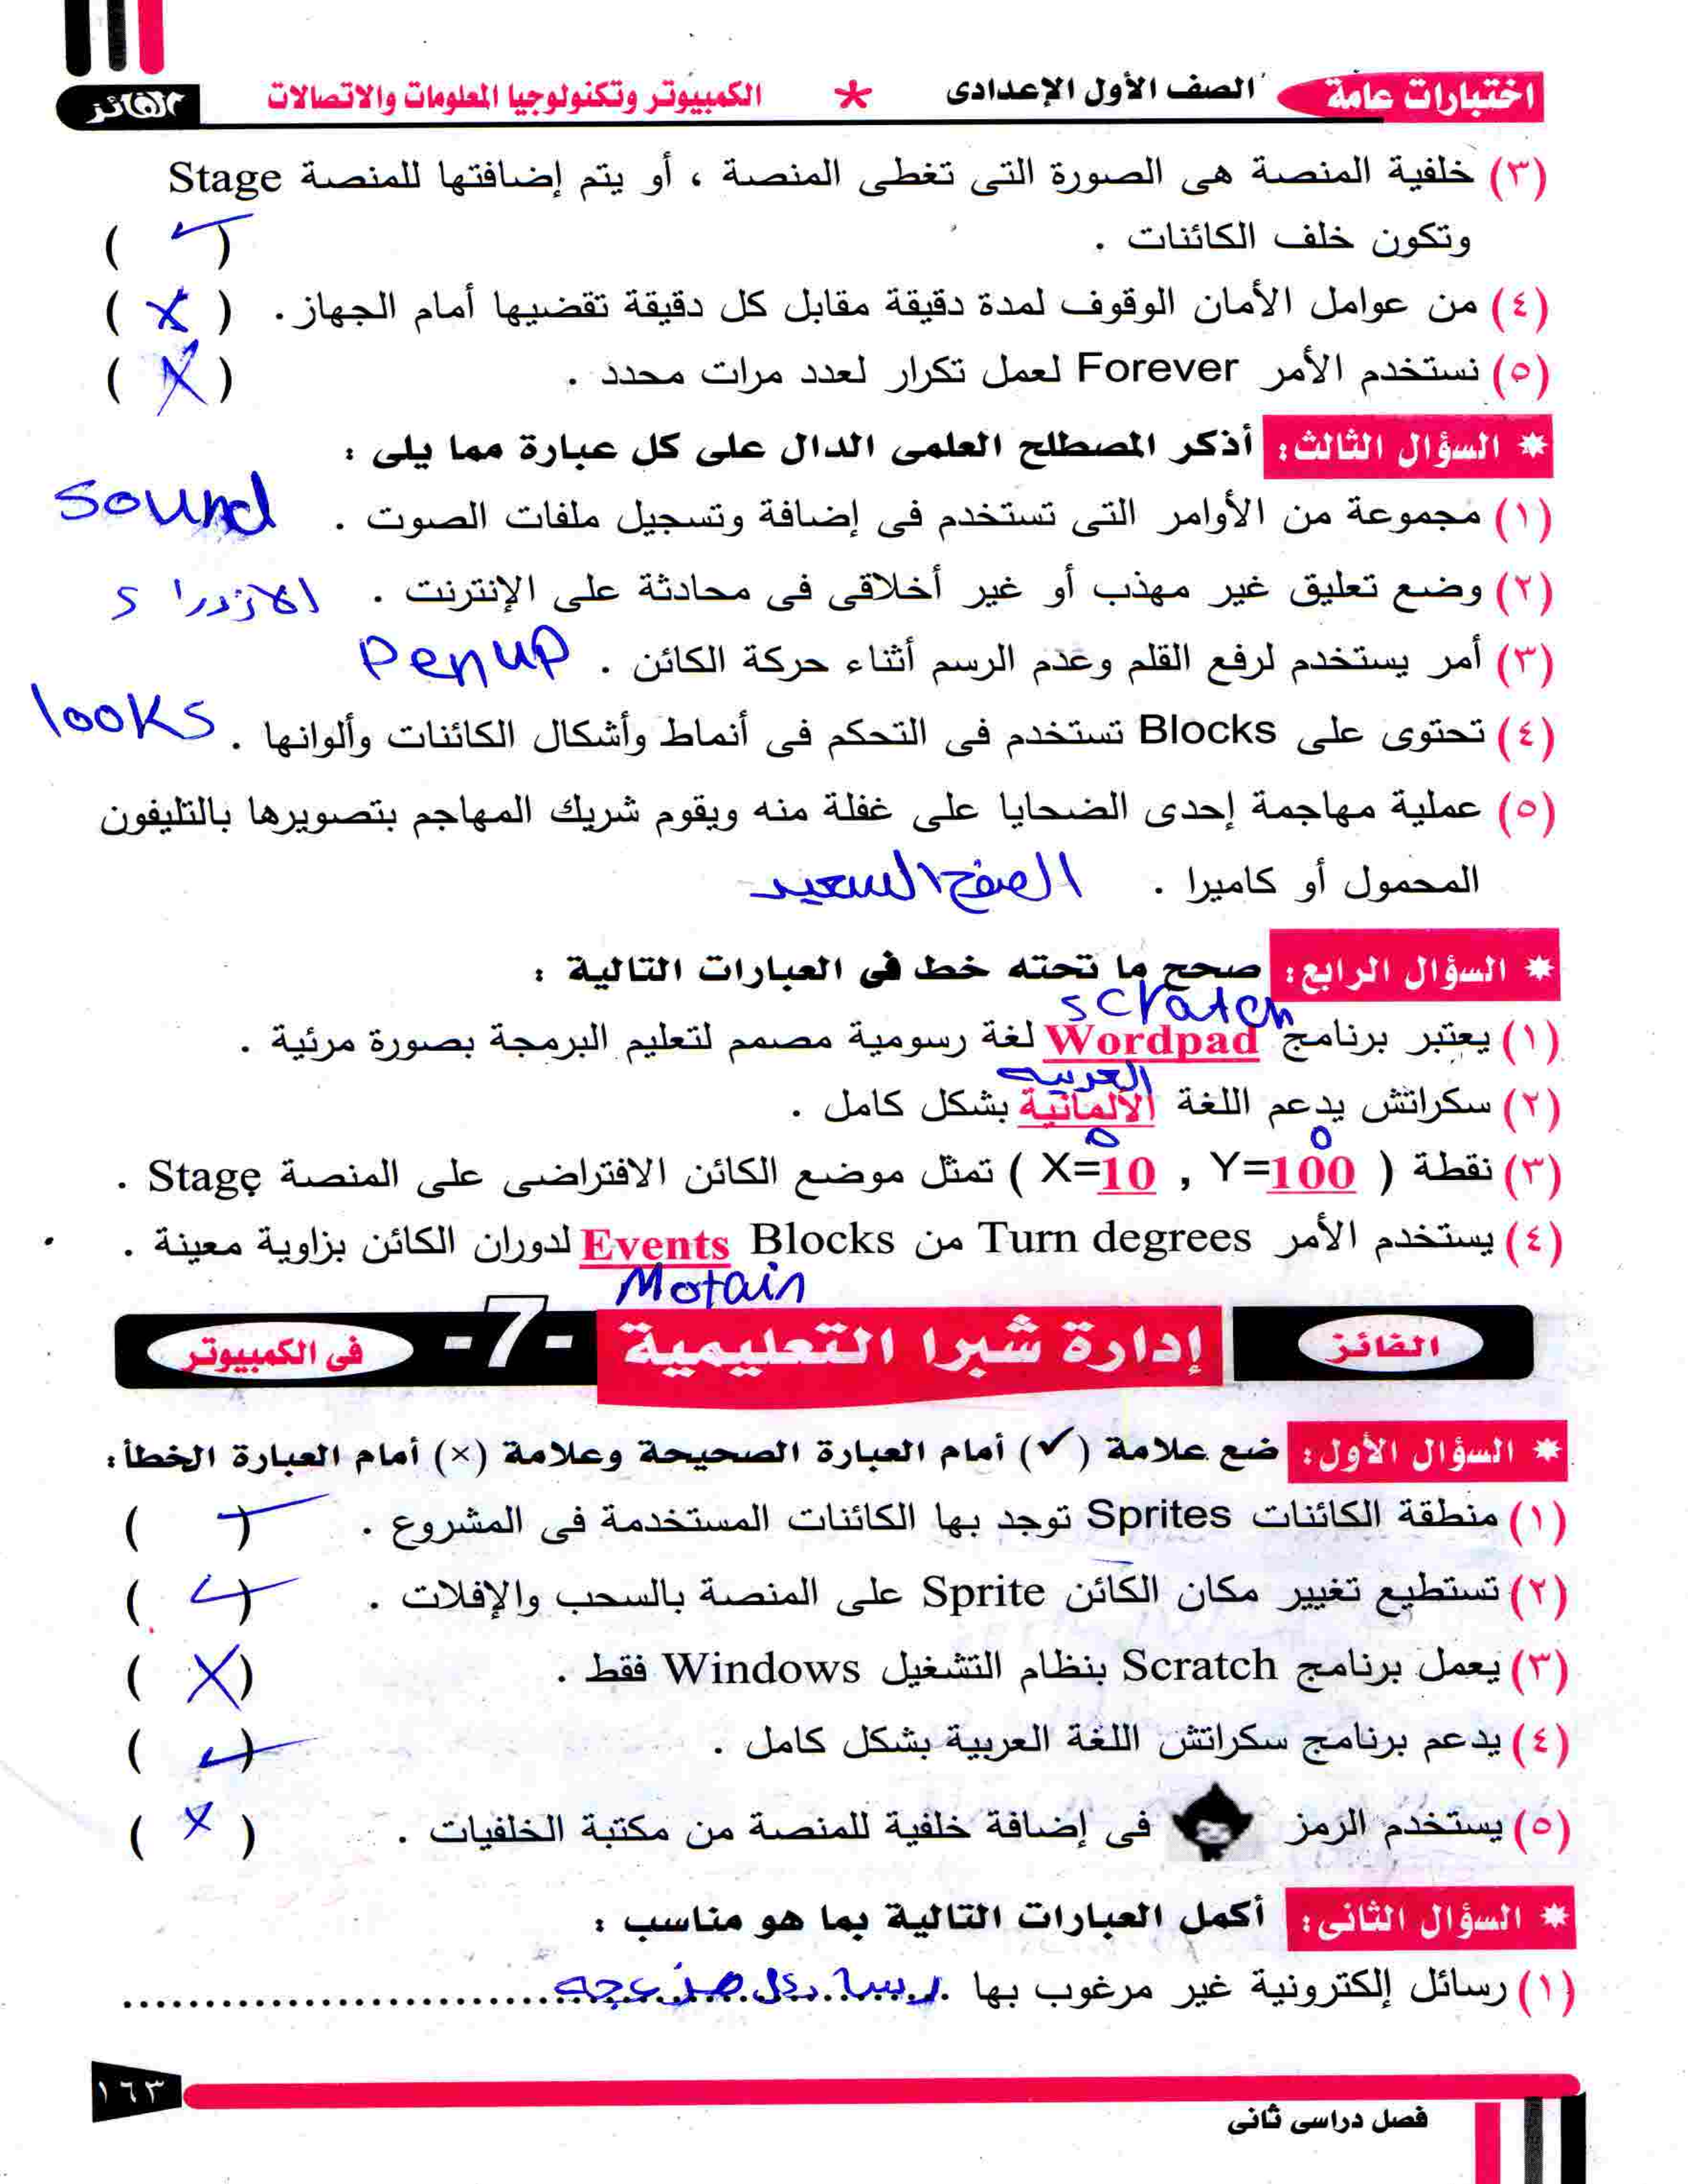 اختبارات عامة الصف الأول الإعدادى * الكمبيوتر وتكنولوجيا المعلومات والاتصالات الفائز
(٣) خلفية المنصة هى الصورة التى تغطى المنصة ، أو يتم إضافتها للمنصة Stage
وتكون خلف الكائنات . ( ✓ )
(٤) من عوامل الأمان الوقوف لمدة دقيقة مقابل كل دقيقة تقضيها أمام الجهاز . ( X )
(٥) نستخدم الأمر Forever لعمل تكرار لعدد مرات محدد . ( X )
* السؤال الثالث : أذكر المصطلح العلمى الدال على كل عبارة مما يلى :
(١) مجموعة من الأوامر التى تستخدم فى إضافة وتسجيل ملفات الصوت . sound
(٢) وضع تعليق غير مهذب أو غير أخلاقى فى محادثة على الإنترنت . الازدراء
(٣) أمر يستخدم لرفع القلم وعدم الرسم أثناء حركة الكائن . Pen up
(٤) تحتوى على Blocks تستخدم فى التحكم فى أنماط وأشكال الكائنات وألوانها . looks
(٥) عملية مهاجمة إحدى الضحايا على غفلة منه ويقوم شريك المهاجم بتصويرها بالتليفون
المحمول أو كاميرا . الصفح السعيد
* السؤال الرابع : صحح ما تحته خط فى العبارات التالية :
scratch
(١) يعتبر برنامج Wordpad لغة رسومية مصمم لتعليم البرمجة بصورة مرئية .
العربيه
(٢) سكراتش يدعم اللغة الألمانية بشكل كامل .
0 0
(٣) نقطة ( X=10 , Y=100 ) تمثل موضع الكائن الافتراضى على المنصة Stage .
(٤) يستخدم الأمر Turn degrees من Blocks Events لدوران الكائن بزاوية معينة .
Motain
الفائز إدارة شبرا التعليمية -7- فى الكمبيوتر
* السؤال الأول : ضع علامة (✓) أمام العبارة الصحيحة وعلامة (×) أمام العبارة الخطأ :
(١) منطقة الكائنات Sprites توجد بها الكائنات المستخدمة فى المشروع . ( ✓ )
(٢) تستطيع تغيير مكان الكائن Sprite على المنصة بالسحب والإفلات . ( ✓ )
(٣) يعمل برنامج Scratch بنظام التشغيل Windows فقط . ( X )
(٤) يدعم برنامج سكراتش اللغة العربية بشكل كامل . ( ✓ )
(٥) يستخدم الرمز فى إضافة خلفية للمنصة من مكتبة الخلفيات . ( X )
* السؤال الثانى : أكمل العبارات التالية بما هو مناسب :
(١) رسائل إلكترونية غير مرغوب بها رسائل مزعجه
١٦٣
فصل دراسى ثانى